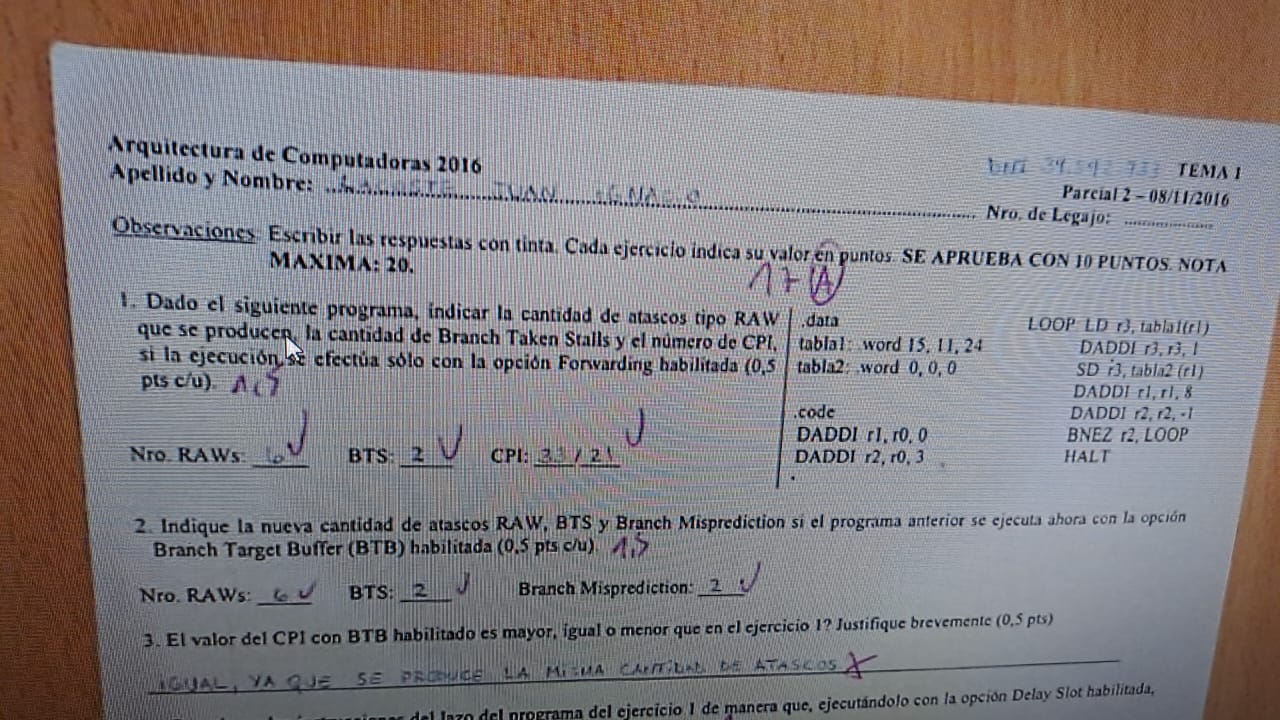 Arquitectura de Computadoras 2016
TEMA 1
Apellido y Nombre: IVAN
Parcial 2 – 08/11/2016
Nro. de Legajo:
Observaciones: Escribir las respuestas con tinta. Cada ejercicio indica su valor en puntos. SE APRUEBA CON 10 PUNTOS. NOTA
MAXIMA: 20.
17 (A)
1. Dado el siguiente programa, indicar la cantidad de atascos tipo RAW
que se producen, la cantidad de Branch Taken Stalls y el número de CPI,
si la ejecución se efectúa sólo con la opción Forwarding habilitada (0,5
pts c/u). 1,5
Nro. RAWs: 6 BTS: 2 CPI: / 21
.data
tabla1: .word 15, 11, 24
tabla2: .word 0, 0, 0
.code
DADDI r1, r0, 0
DADDI r2, r0, 3
LOOP LD r3, tabla1(r1)
DADDI r3, r3, 1
SD r3, tabla2 (r1)
DADDI r1, r1, 8
DADDI r2, r2, -1
BNEZ r2, LOOP
HALT
2. Indique la nueva cantidad de atascos RAW, BTS y Branch Misprediction si el programa anterior se ejecuta ahora con la opción
Branch Target Buffer (BTB) habilitada (0,5 pts c/u). 1,5
Nro. RAWs: 6 BTS: 2 Branch Misprediction: 2
3. El valor del CPI con BTB habilitado es mayor, igual o menor que en el ejercicio 1? Justifique brevemente (0,5 pts)
IGUAL, YA QUE SE PRODUCE LA MISMA CANTIDAD DE ATASCOS
del lazo del programa del ejercicio 1 de manera que, ejecutándolo con la opción Delay Slot habilitada,